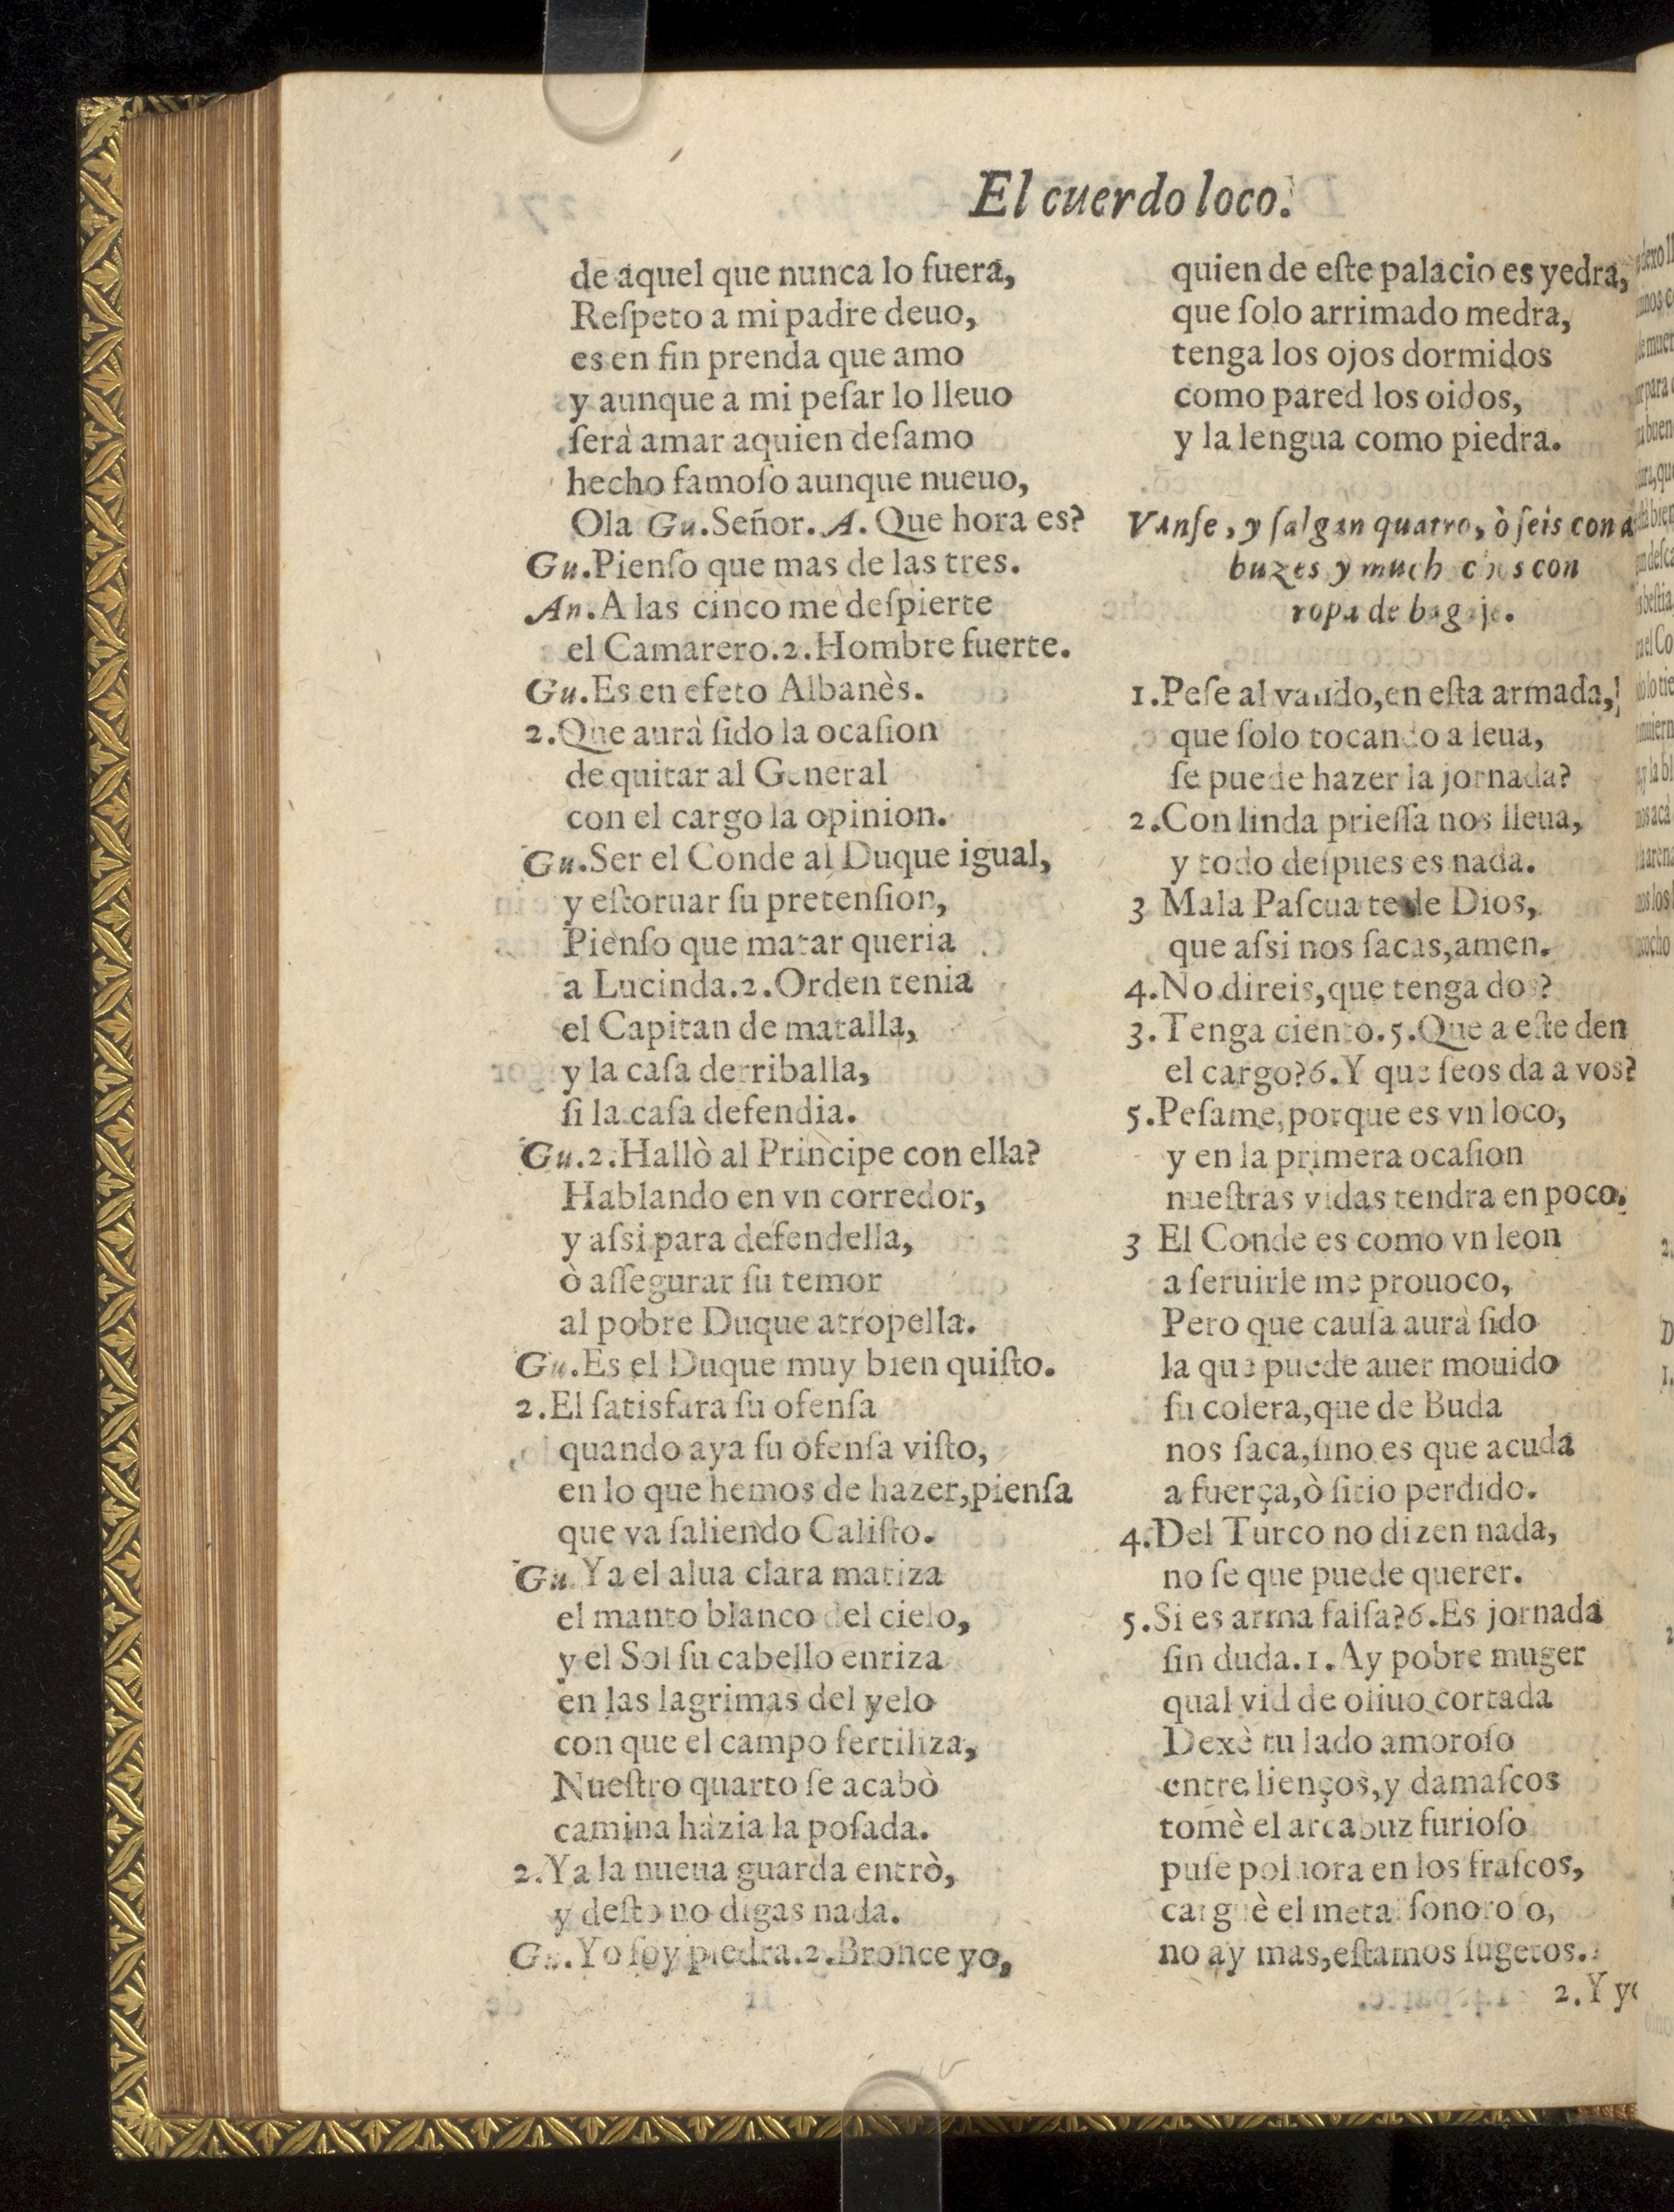 El cuerdo loco.
de aquel que nunca lo fuera,
Reſpeto a mi padre deuo,
es en fin prenda que amo
y aunque a mi peſar lo lleuo
ſerà amar aquien deſamo
hecho famoſo aunque nueuo,
Ola Gu.Señor. A. Que hora es?
Gu.Pienſo que mas de las tres.
An.A las cinco me deſpierte
el Camarero.2.Hombre fuerte.
Gu.Es en efeto Albanès.
2.Que aurà ſido la ocaſion
de quitar al General
con el cargo la opinion.
Gu.Ser el Conde al Duque igual,
y eſtoruar ſu pretenſion,
Pienſo que matar queria
a Lucinda.2.Orden tenia
el Capitan de matalla,
y la caſa derriballa,
ſi la caſa defendia.
Gu.2.Hallò al Principe con ella?
Hablando en vn corredor,
y aſsi para defendella,
ò aſſegurar ſu temor
al pobre Duque atropella.
Gu.Es el Duque muy bien quiſto.
2.El ſatisfara ſu ofenſa
quando aya ſu ofenſa viſto,
en lo que hemos de hazer,pienſa
que va ſaliendo Caliſto.
Gu.Ya el alua clara matiza
el manto blanco del cielo,
y el Sol ſu cabello enriza
en las lagrimas del yelo
con que el campo fertiliza,
Nueſtro quarto ſe acabò
camina hàzia la poſada.
2.Ya la nueua guarda entrò,
y deſto no digas nada.
Gu.Yo ſoy piedra.2.Bronce yo,
quien de eſte palacio es yedra,
que ſolo arrimado medra,
tenga los ojos dormidos
como pared los oidos,
y la lengua como piedra.
Vanſe, y ſalgan quatro, ò ſeis con a
buzes y muchachos con
ropa de bagaje.
1.Peſe al vando,en eſta armada,
que ſolo tocando a leua,
ſe puede hazer la jornada?
2.Con linda prieſſa nos lleua,
y todo deſpues es nada.
3 Mala Paſcua te de Dios,
que aſsi nos ſacas,amen.
4.No direis,que tenga dos?
3.Tenga ciento.5.Que a eſte den
el cargo?6.Y que ſeos da a vos?
5.Peſame,porque es vn loco,
y en la primera ocaſion
nueſtras vidas tendra en poco.
3 El Conde es como vn leon
a ſeruirle me prouoco,
Pero que cauſa aurà ſido
la que puede auer mouido
ſu colera,que de Buda
nos ſaca,ſino es que acuda
a fuerça,ò ſitio perdido.
4.Del Turco no dizen nada,
no ſe que puede querer.
5.Si es arma falſa?6.Es jornada
ſin duda.1.Ay pobre muger
qual vid de oliuo cortada
Dexè tu lado amoroſo
entre lienços,y damaſcos
tomè el arcabuz furioſo
puſe poluora en los fraſcos,
carguè el metal ſonoroſo,
no ay mas,eſtamos ſugetos.
2.Y yo